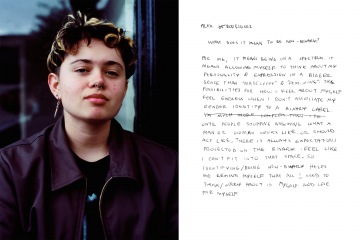 WHAT DOES IT MEAN TO BE NON-BINARY?
FOR ME, IT MEANS BEING ON A SPECTRUM. IT
MEANS ALLOWING MYSELF TO THINK ABOUT MY
PERSONALITY & EXPRESSION ON A BIGGER
SCALE THAN "MASCULINE" & "FEMININE". THE
POSSIBILITIES FOR HOW I FEEL ABOUT MYSELF
FEEL ENDLESS WHEN I DON'T ASSOCIATE MY
GENDER IDENTITY TO A BINARY LABEL
ONCE PEOPLE SUPPOSE ASSUME WHAT A
MAN OR WOMAN LOOKS LIKE, OR SHOULD
ACT LIKE, THERE IS ALWAYS EXPECTATIONS
PROJECTED ON THE BINARY. I FEEL LIKE
I CAN'T FIT INTO THAT SPACE, SO
IDENTIFYING/BEING NON-BINARY HELPS
ME REMIND MYSELF THAT ALL I NEED TO
THINK/WORRY ABOUT IS MYSELF AND LOVE
FOR MYSELF